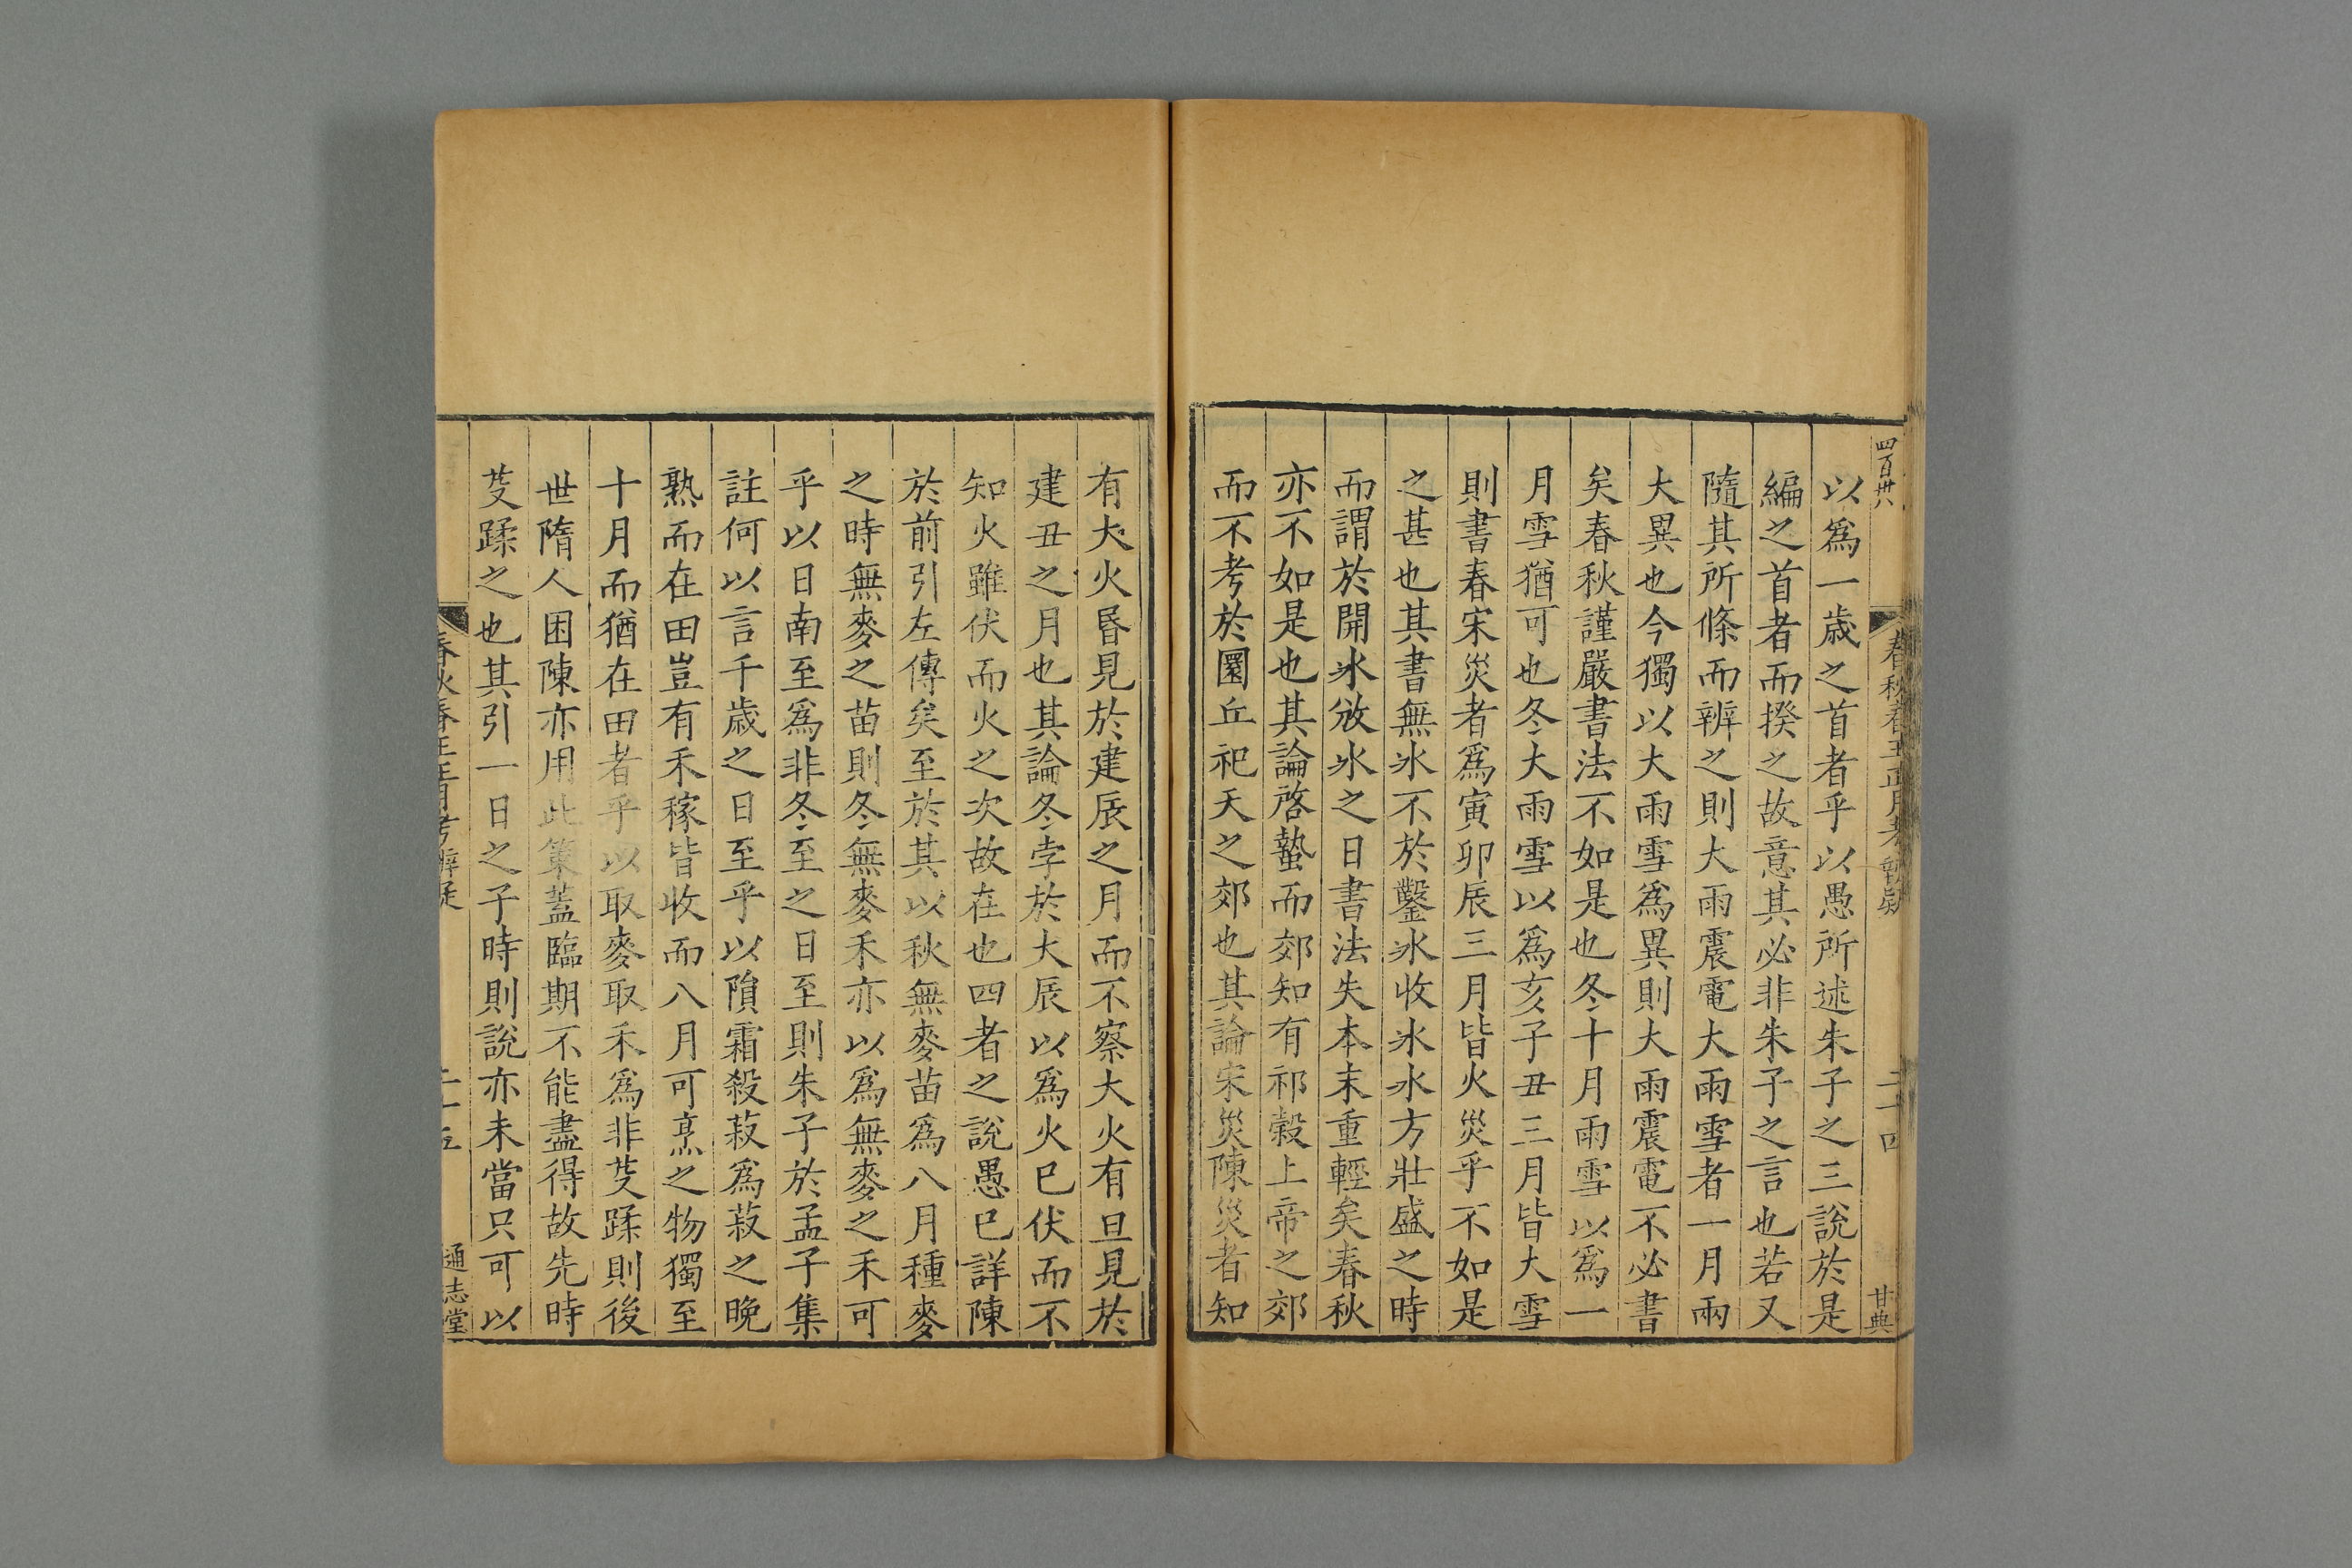 四百卅八
春秋春王正月考 辨疑
二十四
甘典
以爲一歲之首者乎以愚所述朱子之三說於是
編之首者而揆之故意其必非朱子之言也若又
隨其所條而辨之則大雨震電大雨雪者一月兩
大異也今獨以大雨雪爲異則大雨震電不必書
矣春秋謹嚴書法不如是也冬十月雨雪以爲一
月雪猶可也冬大雨雪以爲亥子丑三月皆大雪
則書春宋災者爲寅卯辰三月皆火災乎不如是
之甚也其書無氷不於鑿氷收氷氷方壯盛之時
而謂於開氷放氷之日書法失本末重輕矣春秋
亦不如是也其論啓蟄而郊知有祁穀上帝之郊
而不考於圜丘祀天之郊也其論宋災陳災者知
有大火昏見於建辰之月而不察大火有旦見於
建丑之月也其論冬孛於大辰以爲火巳伏而不
知火雖伏而火之次故在也四者之說愚巳詳陳
於前引左傳矣至於其以秋無麥苗爲八月種麥
之時無麥之苗則冬無麥禾亦以爲無麥之禾可
乎以日南至爲非冬至之日至則朱子於孟子集
註何以言千歲之日至乎以隕霜殺菽爲菽之晩
熟而在田豈有禾稼皆收而八月可烹之物獨至
十月而猶在田者乎以取麥取禾爲非芟蹂則後
世隋人困陳亦用此策蓋臨期不能盡得故先時
芟蹂之也其引一日之子時則說亦未當只可以
春秋春王正月考辨疑
二十五
通志堂